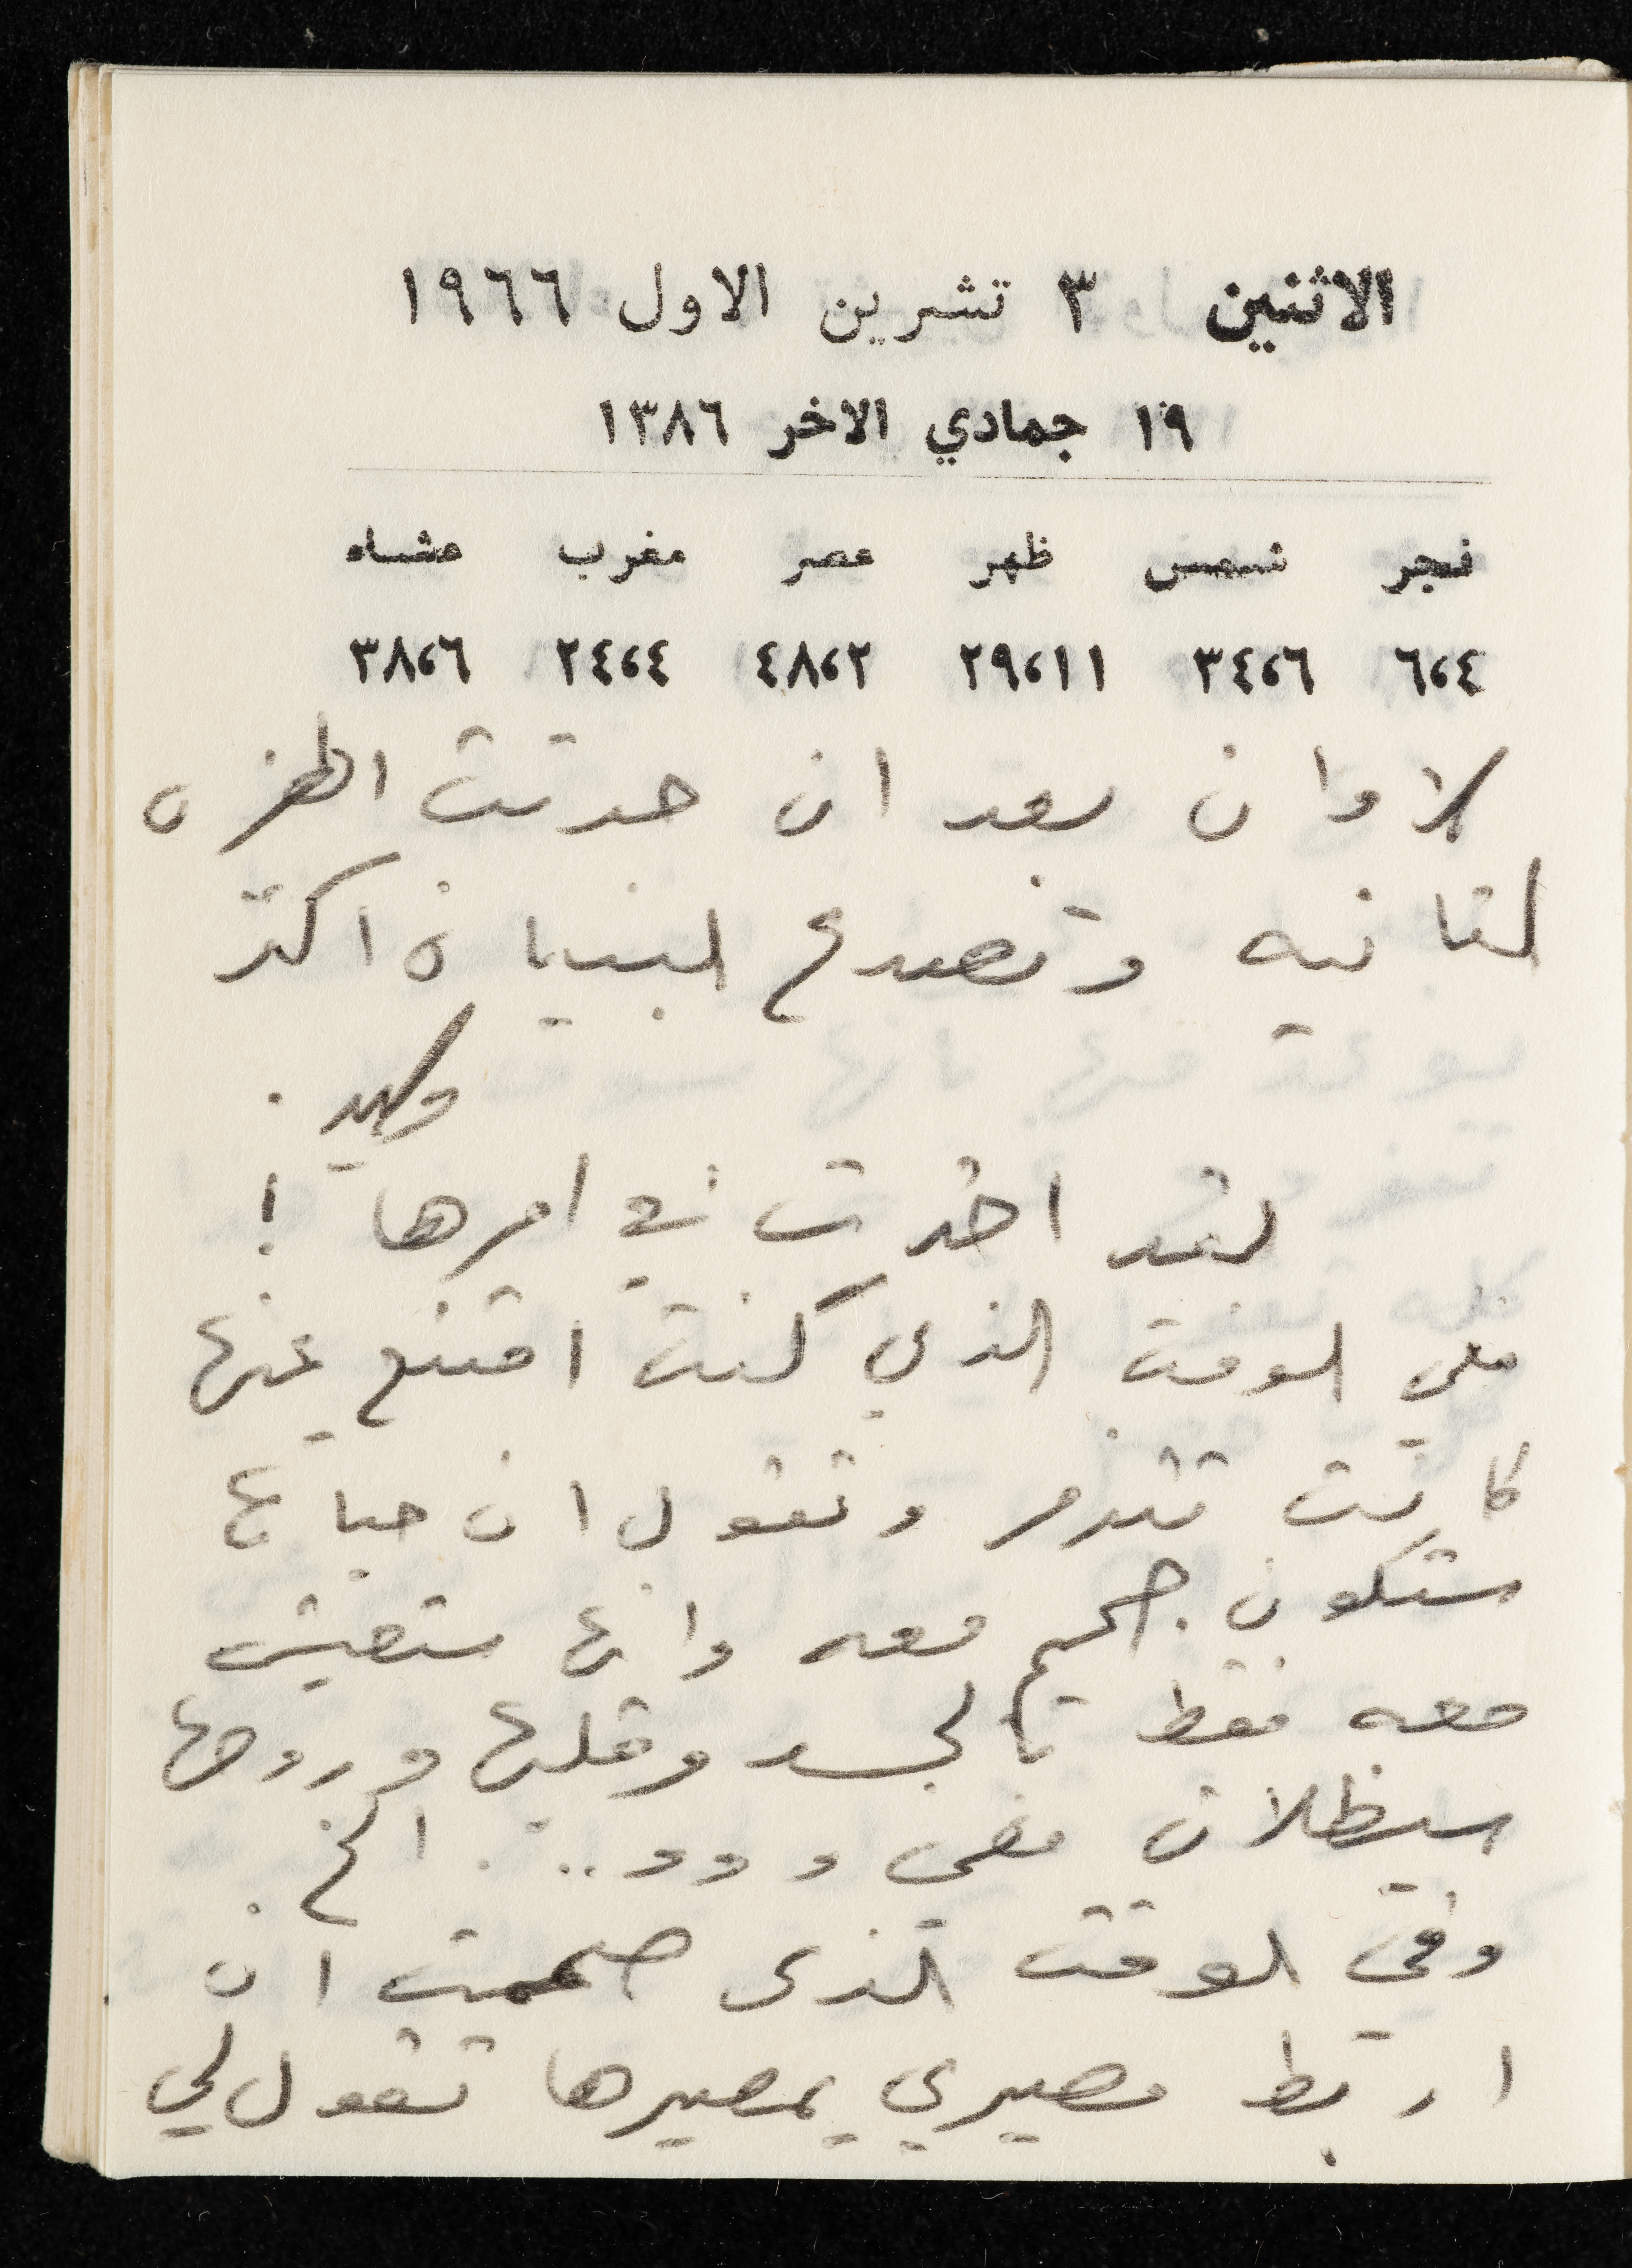 الاثنين ٣ تشرين الاول ١٩٦٦
١٩ جمادي الاخر ١٣٨٦
فجر شمس ظهر عصر مغرب عشاء
٦،٤ ٣٤،٦ ٢٩،١١ ٤٨،٢ ٢٤،٤ ٣٨،٦
لاوان بعد ان حدثت الهزه
الثانيه وتصدع البنيان اكثر
واكيد .
لقد اخترت في امرها !
ففي الوقت الذي كنت امتنع عنها
كانت تتذمر وتقول ان حياتها
ستكون جحيم معه وانها ستعيش
معه فقط بالجسد وقلبها وروحها
سيظلان معي و و و ... الخ .
وفي الوقت الذي صممت ان
اربط مصيري بمصيرها تقول لي